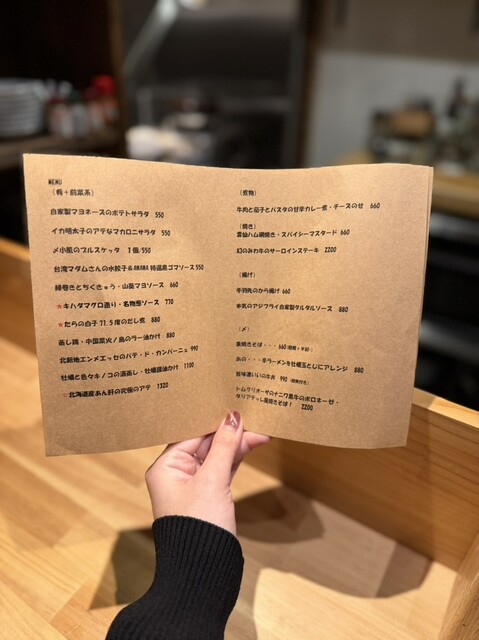 MENU
(肴+前菜系)
自家製マヨネーズのポテトサラダ 550
イカ明太子のアテなマカロニサラダ 550
〆小肌のブルスケッタ 1個/550
台湾マダムさんの水餃子& 特選黒ゴマソース 550
胡瓜 660
★キハダマグロ造り・名物葱ソース 770
★たらの白子 71.5度のだし煮 880
蒸し鶏・中国菜火ノ鳥のラー油かけ 880
北新地エンメエッセのパテ・ド・カンパーニュ 990
牡蠣と色々キノコの酒蒸し・牡蠣醤油かけ 1100
★北海道産あん肝の究極のアテ 1320
(煮物)
牛肉と茄子とパスタの甘辛カレー煮・チーズのせ 660
(焼き)
雲仙ハム網焼き・スパイシーマスタード 660
幻のみわ牛のサーロインステーキ 2200
(揚げ)
手羽先のから揚げ 660
本気のアジフライ自家製タルタルソース 880
(〆)
焼きそば・・・ 660
あの・・・辛ラーメンを牡蠣玉とじにアレンジ 880
旨味濃いいの牛丼 990
トムクリオーザのナニワ黒牛のボロネーゼ・
タリアテッレ風焼きそば! 2200